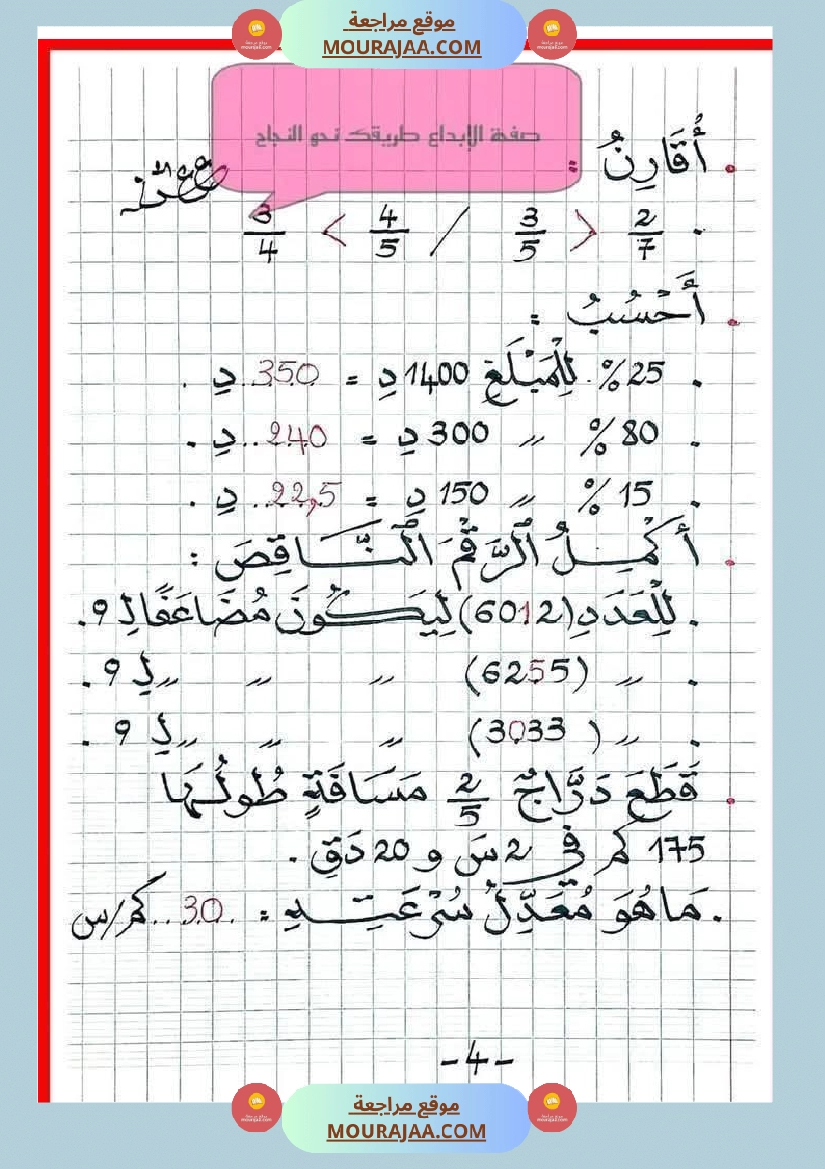 موقع مراجعة
MOURAJAA.COM
صفحة الإبداع طريقك نحو النجاح
• أُقَارِنُ :
• 2/7 > 3/5 / 4/5 < 3/4
• أَحْسُبُ :
• 25 % لِلْمَبْلَغِ 1400 دِ = 350 دِ .
• 80 % 〃 300 دِ = 240 دِ .
• 15 % 〃 150 دِ = 22,5 دِ .
• أُكْمِلُ الرَّقْمَ النَّاقِصَ :
• لِلْعَدَدِ (6012) لِيَكُونَ مُضَاعَفًا لِـ 9 .
• 〃 (6255) 〃 〃 〃 لِـ 9 .
• 〃 (3033) 〃 〃 〃 لِـ 9 .
• قَطَعَ دَرَّاجٌ 2/5 مَسَافَةٍ طُولُهَا
175 كم فِي 2 سَ و 20 دَقِ .
• مَا هُوَ مُعَدِّلُ سُرْعَتِهِ : 30 كم/س
-4-
موقع مراجعة
MOURAJAA.COM